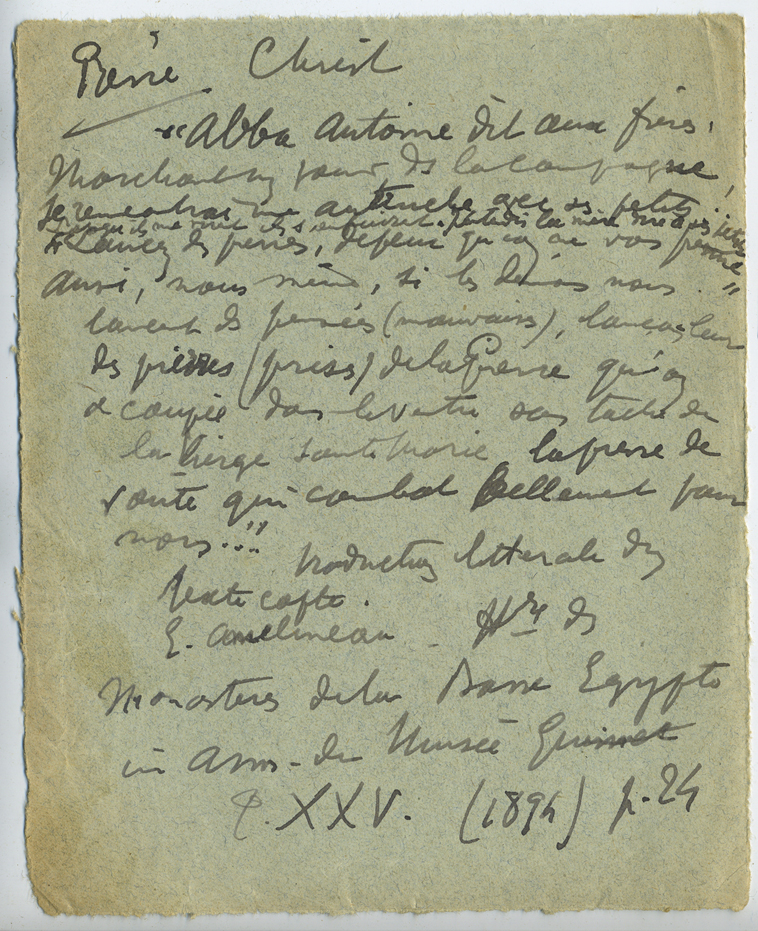 Pierre Christ
"Abba Antoine dit aux frères.
Marchant un jour, ds la campagne,
Je rencontrai une autruche avec ses petits.
Lancez des pierres, depeur qu'on ne vous prenne
Aussi, nous même, si les démons nous
lancent des pensées (mauvaises), lançons leur
des pierres (prises) de la Pierre qu'on
a coupée dans le ventre sans tache de
la Vierge Sainte Marie la pierre de
vérité qui combat bellement pour
nous..."
traduction littérale du
texte copte.
E. Amelineau - Hre ds
Monastères de la Basse Egypte
in Ann- du Musée Guimet
t. XXV. (1894) p. 24